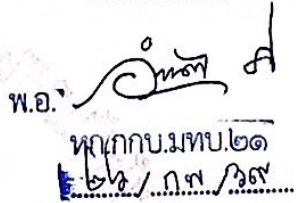 พ.อ.
หก.กกบ.มทบ.๒๑
๒๖ / ก.พ. / ๖๙